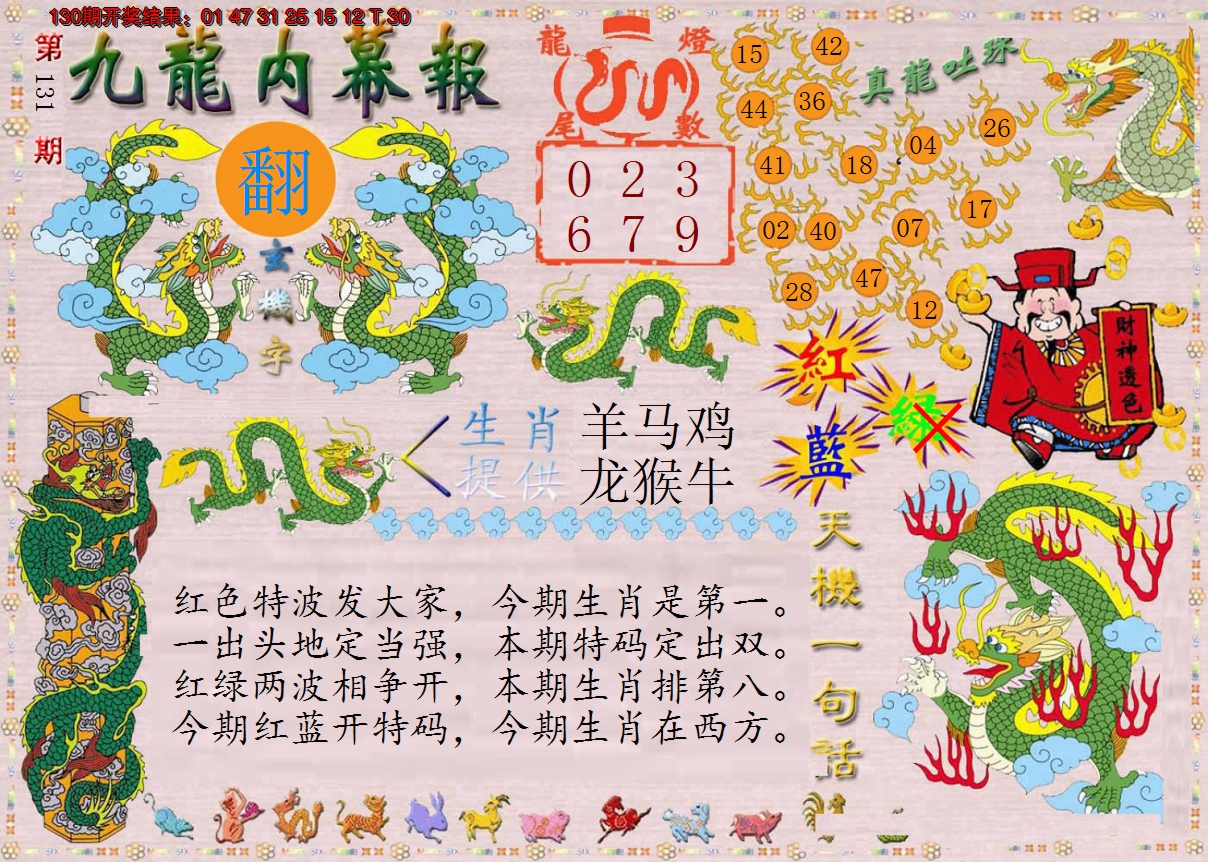 130期开奖结果：01 47 31 25 15 12 T 30
第131期
九龍内幕報
翻
玄機字
龍燈尾數
0 2 3
6 7 9
真龍吐珠
15 42
44 36
04 26
41 18
17
02 40 07
47
28 12
財神透色
紅
綠
藍
生肖 羊马鸡
提供 龙猴牛
天機一句话
红色特波发大家，今期生肖是第一。
一出头地定当强，本期特码定出双。
红绿两波相争开，本期生肖排第八。
今期红蓝开特码，今期生肖在西方。